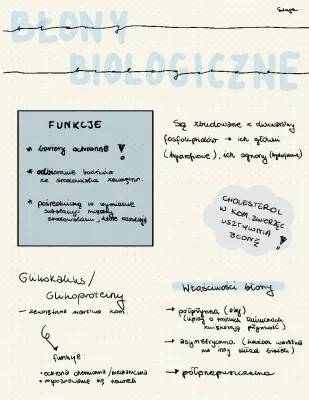 BŁONY
błony
BIOLOGICZNE
biologiczne
FUNKCJE
* bariery ochronne !
* odbieranie bodźców
ze środowiska zewnętrzn.
* pośredniczą w wymianie
substancji między
środowiskami, które
Są zbudowane z dwuwarstwy
fosfolipidów → ich głowy
(hydrofilowe), ich ogony (hydrofobowe)
CHOLESTEROL
W KOM. ZWIERZĘC.
USZTYWNIA
BŁONĘ !
Glikokaliks/
Glikoproteiny
– zewnętrzna warstwa kom.
funkcje:
• ochrona chemiczna/mechaniczna
• rozpoznawanie się
Właściwości błony
→ półpłynna (olej)
→ asymetryczna (każda warstwa
ma inny skład białek)
→ półprzepuszczalna